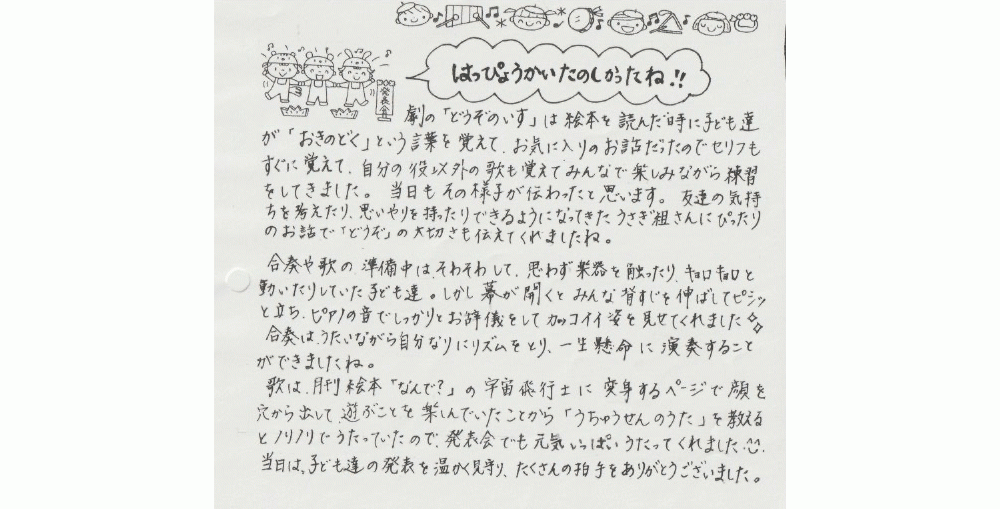 はっぴょうかいたのしかったね!!
発表会
劇の「どうぞのいす」は絵本を読んだ時に子ども達
が「おきのどく」という言葉を覚えて、お気に入りのお話だったのでセリフも
すぐに覚えて、自分の役以外の歌も覚えてみんなで楽しみながら練習
をしてきました。当日もその様子が伝わったと思います。友達の気持
ちを考えたり、思いやりを持ったりできるようになってきたうさぎ組さんにぴったり
のお話で「どうぞ」の大切さも伝えてくれましたね。
合奏や歌の準備中は、そわそわして、思わず楽器を触ったり、キョロキョロと
動いたりしていた子ども達。しかし幕が開くとみんな背すじを伸ばしてピシッ
と立ち、ピアノの音でしっかりとお辞儀をしてカッコイイ姿を見せてくれました
合奏は、うたいながら自分なりにリズムをとり、一生懸命に演奏すること
ができましたね。
歌は、月刊絵本「なんで?」の宇宙飛行士に変身するページで顔を
穴から出して、遊ぶことを楽しんでいたことから「うちゅうせんのうた」を教える
とノリノリでうたっていたので、発表会でも元気いっぱいうたってくれました
当日は、子ども達の発表を温かく見守り、たくさんの拍手をありがとうございました。